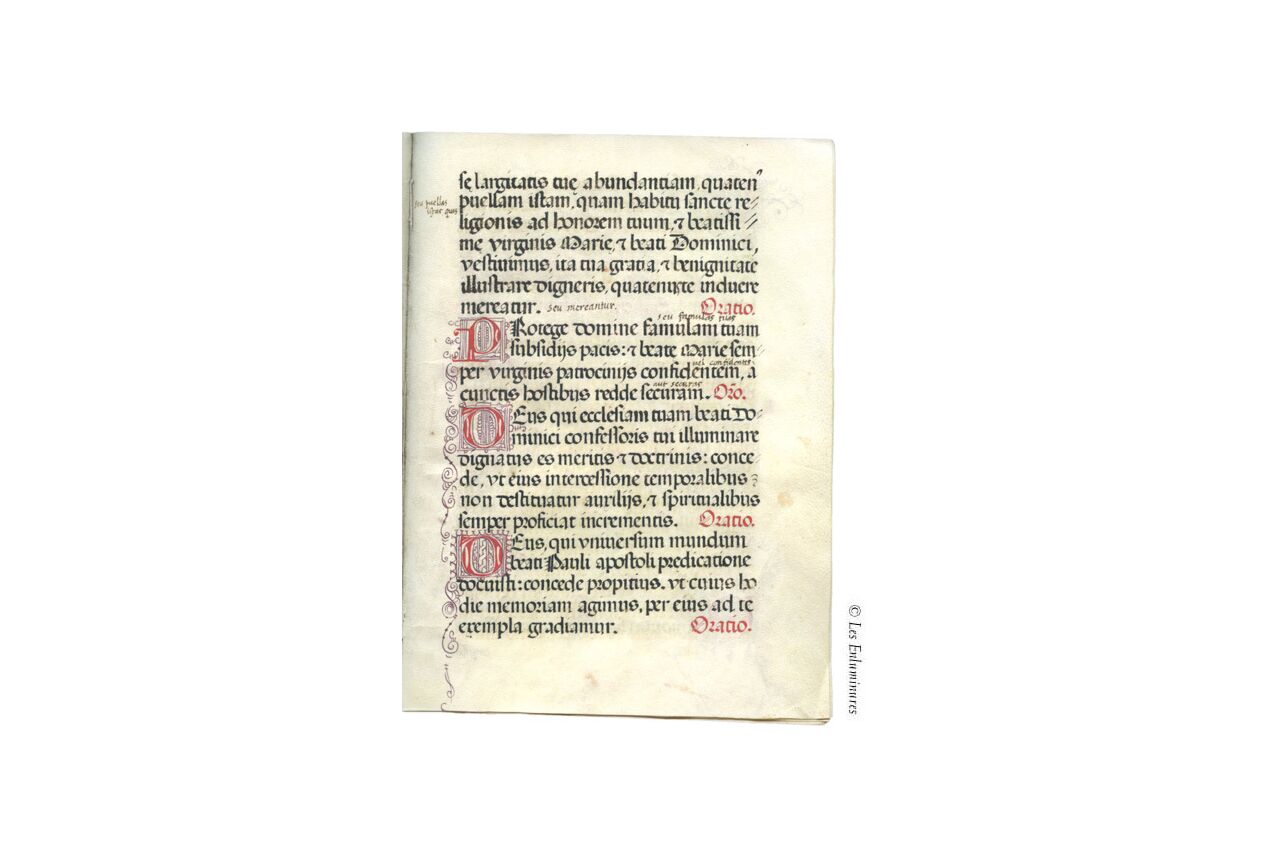 se largitatis tue abundantiam, quaten⁹
seu puellas
istas quas
puellam istam, quam habitu sancte re-
ligionis ad honorem tuum, ⁊ beatissi-
me virginis Marie, ⁊ beati Dominici,
vestivimus, ita tua gratia, ⁊ benignitate
illustrare digneris, quatenus te induere
mereatur. seu mereantur. Oratio.
seu famulas tuas
PRotege domine famulam tuam
subsidijs pacis: ⁊ beate Marie sem-
vel confidentes
per virginis patrocinijs confidentem, a
aut securas
cunctis hostibus redde securam. Oro.
DEus qui ecclesiam tuam beati Do-
minici confessoris tui illuminare
dignatus es meritis ⁊ doctrinis: conce
de, vt eius intercessione temporalibus
non destituatur auxilijs, ⁊ spiritualibus
semper proficiat incrementis. Oratio.
DEus, qui vniversum mundum
beati Pauli apostoli predicatione
docuisti: concede propitius. vt cuius ho
die memoriam agimus, per eius ad te
exempla gradiamur. Oratio.
© Les Enluminures